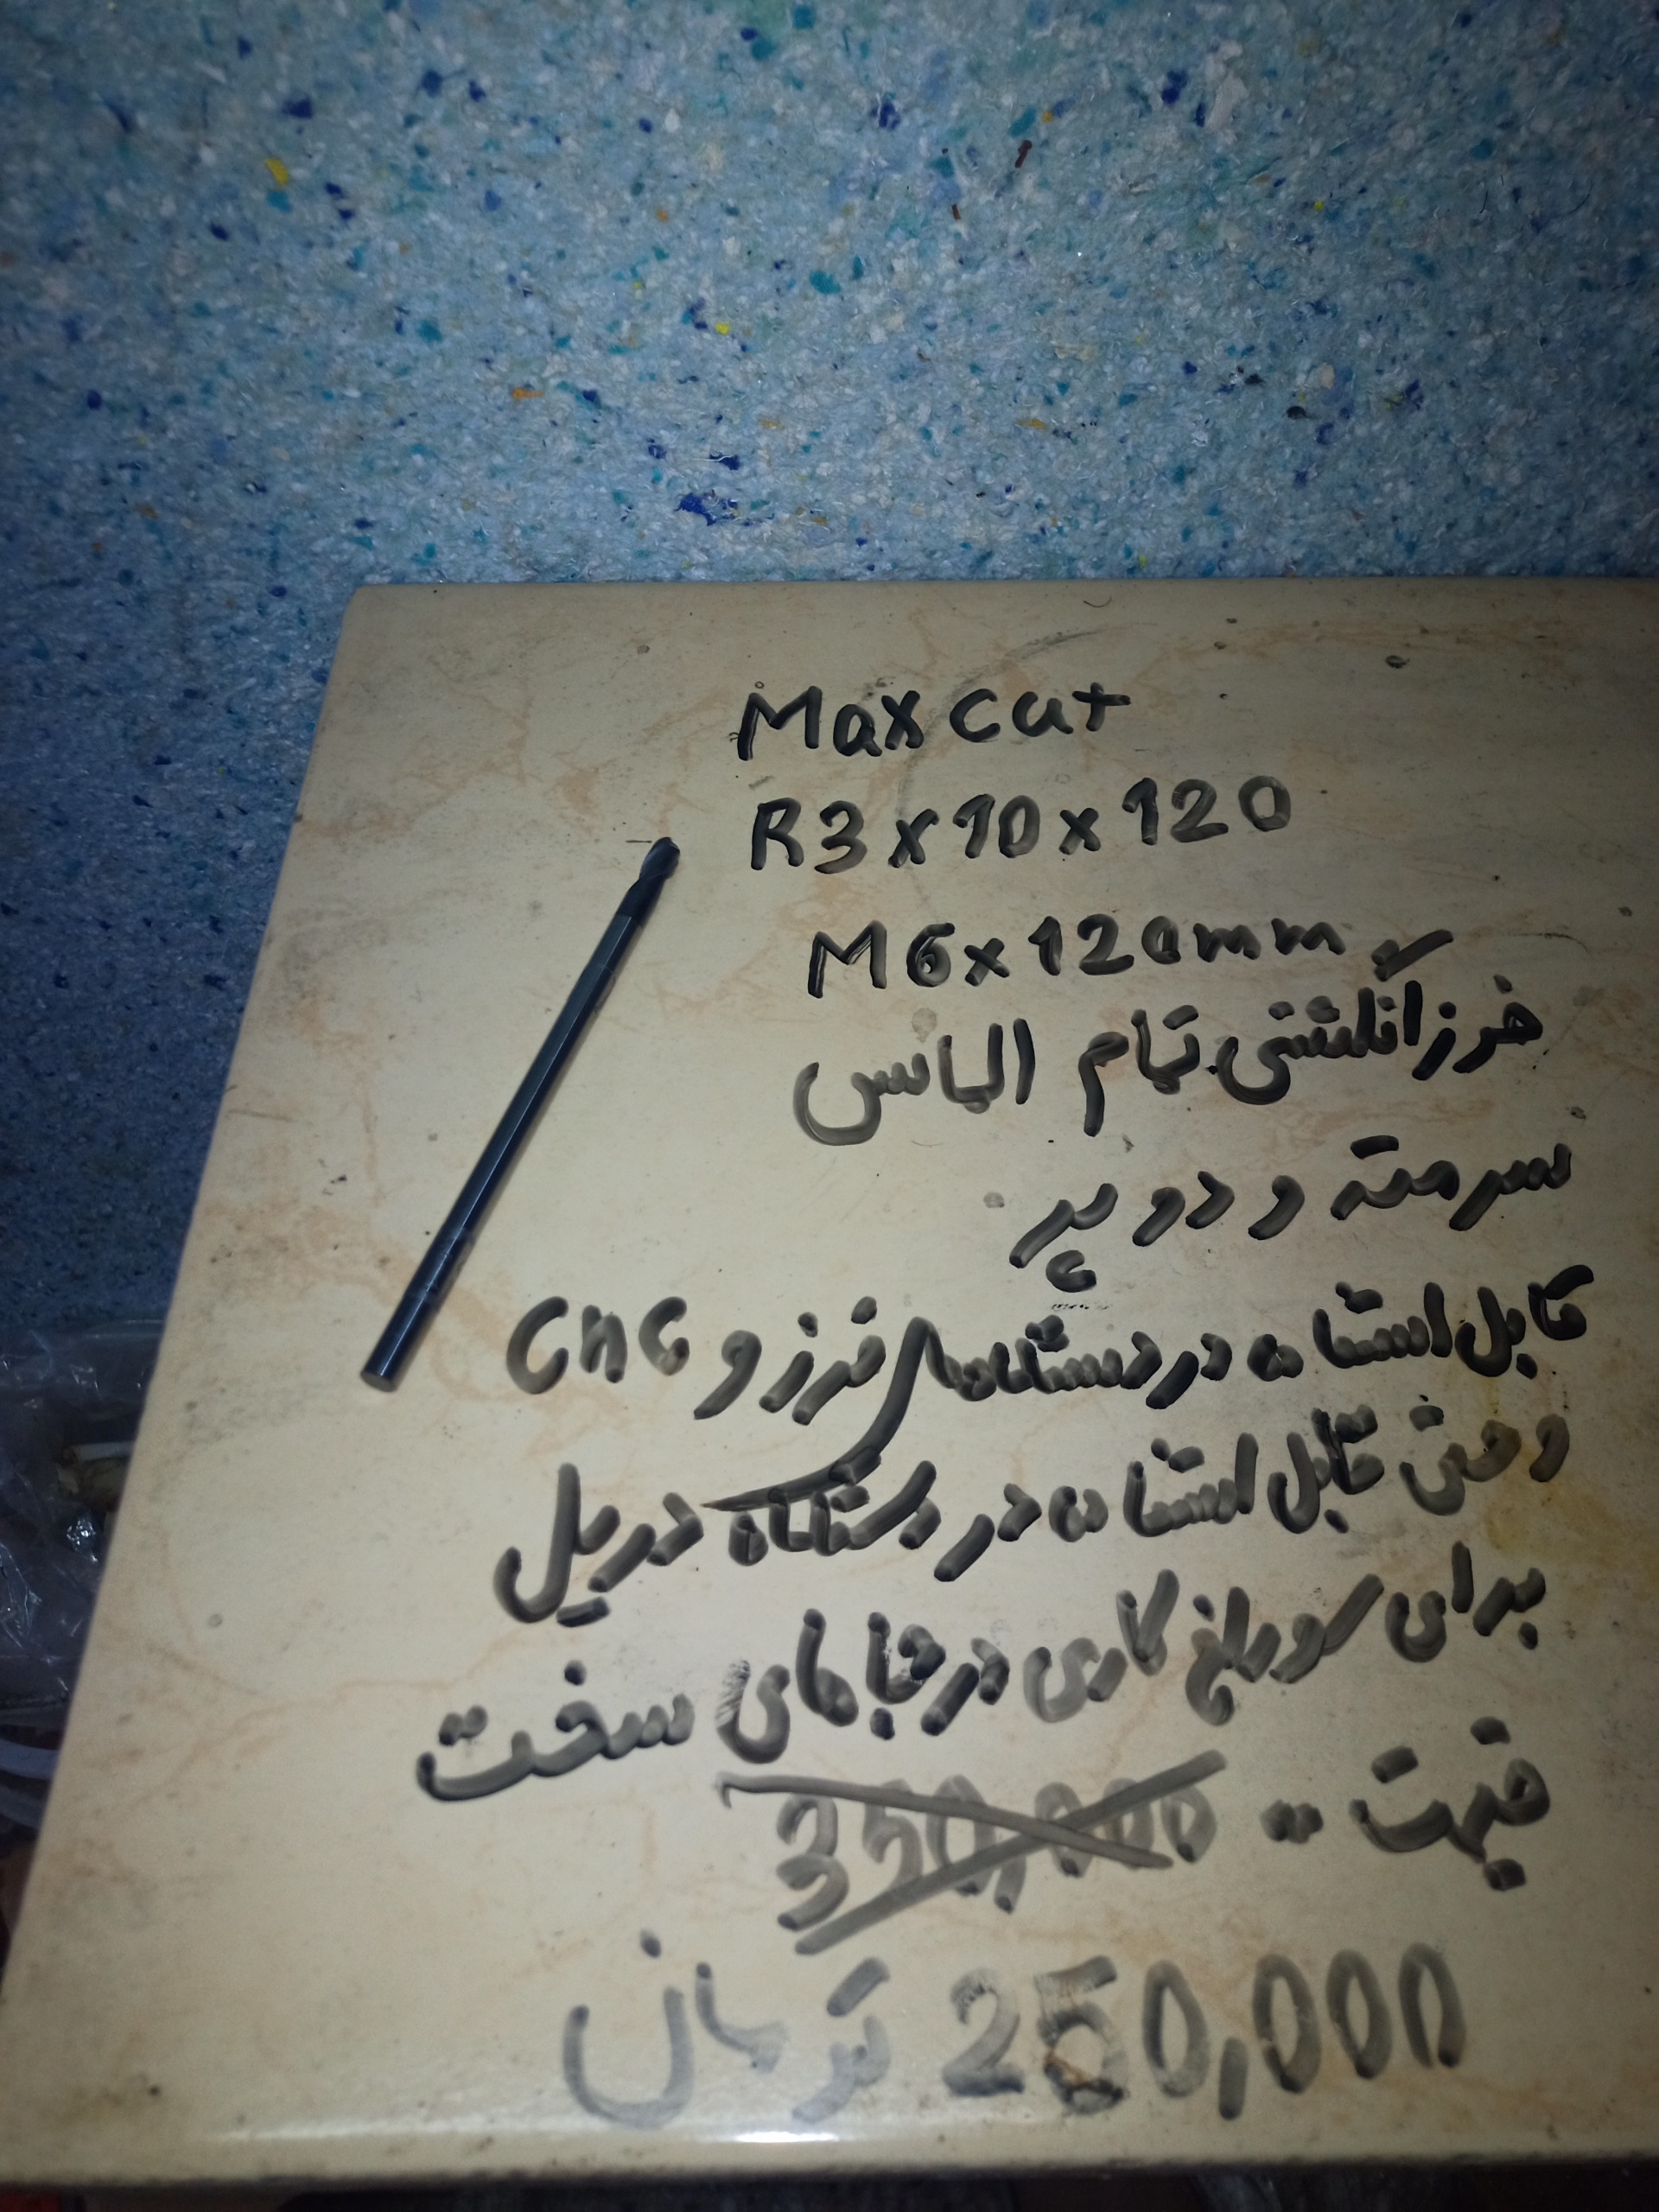 Max cut
R3x10x120
M6x120mm
فرز انگشتی تمام الماس
سر مته و دو پر
قابل استفاده در دستگاههای فرز و cnc
وحتی قابل استفاده در دستگاه دریل
برای سوراخ کاری در جاهای سخت
قیمت = 350,000
250,000 تومان